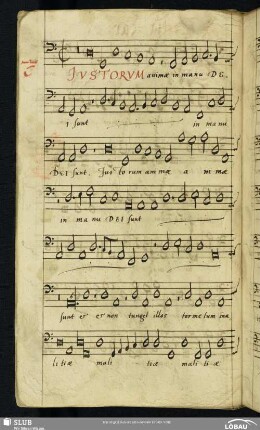 IVSTORVM animæ in manu DE
I sunt in manu
DEI sunt. Jus to rum am mæ a ni mæ
in ma nu DEI sunt
sunt et et non tanget illos torme tum ma
li tiæ mali tiæ mali ti æ
SLUB
LÖBAU